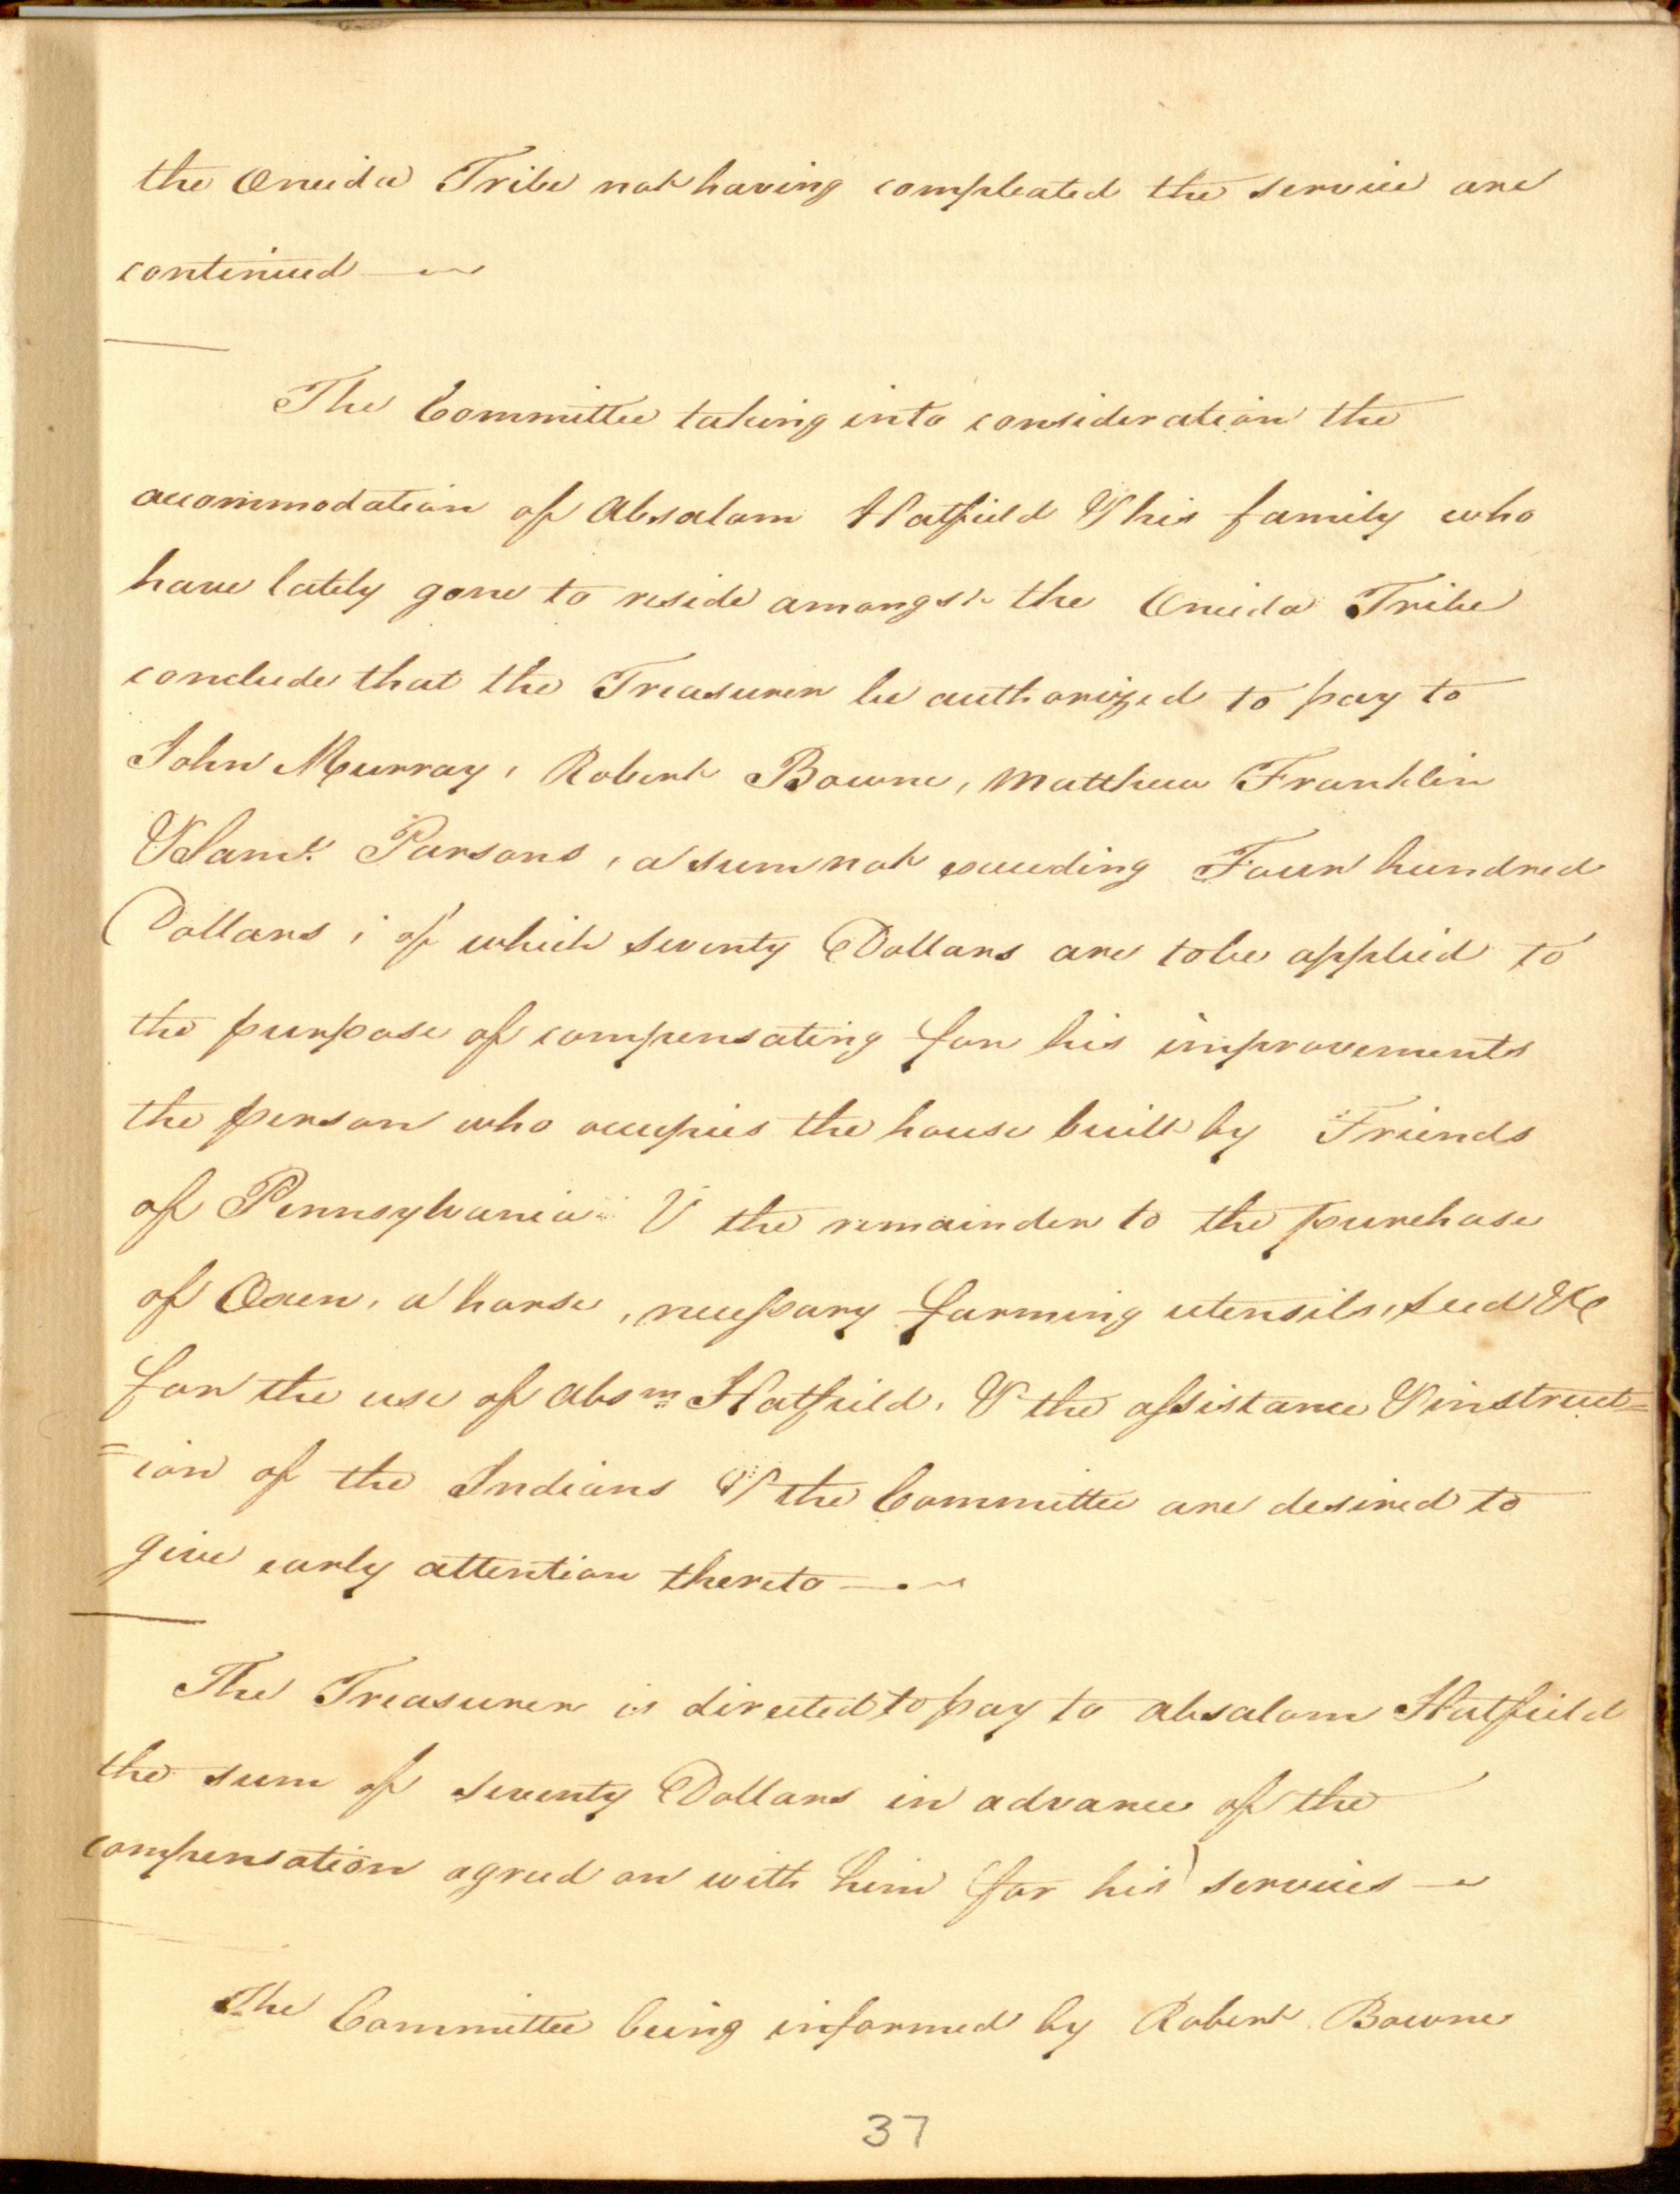 the Oneida Tribe not having compleated the service are
continued —
The Committee taking into consideration the
accommodation of Absalom Hatfield & his family who
have lately gone to reside amongst the Oneida Tribe
conclude that the Treasurer be authorized to pay to
John Murray, Robert Bowne, Matthew Franklin
& Saml. Parsons, a sum not exceeding Four hundred
Dollars; of which seventy Dollars are to be applied to
the purpose of compensating for his improvements
the person who occupies the house built by Friends
of Pennsylvania & the remainder to the purchase
of Oxen, a horse, necessary farming utensils, seed &c
for the use of Absm Hatfield, & the assistance & instruct=
=ion of the Indians & the Committee are desired to
give early attention thereto —
The Treasurer is directed to pay to Absalom Hatfield
the sum of seventy Dollars in advance of the
compensation agreed on with him for his services —
The Committee being informed by Robert Bowne
37